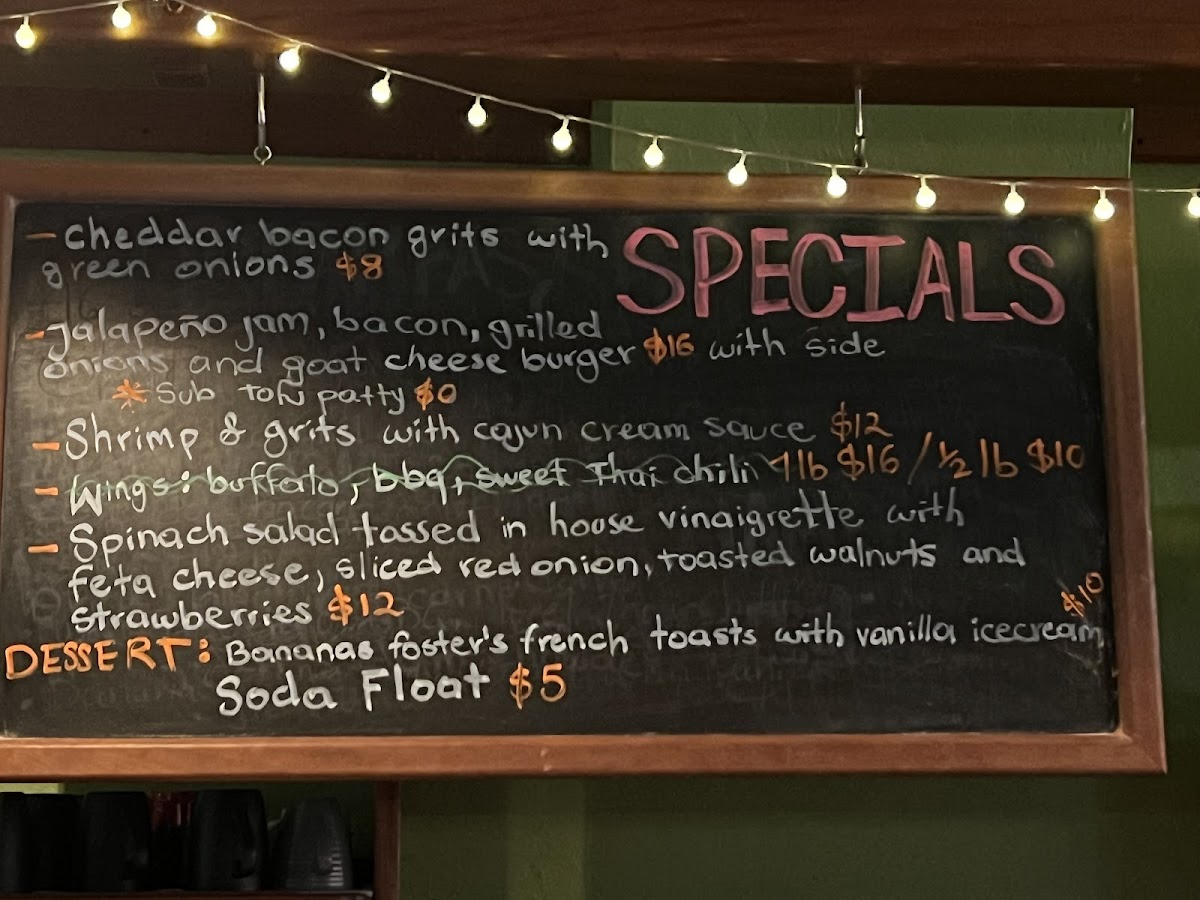 SPECIALS
- cheddar bacon grits with
green onions $8
- jalapeño jam, bacon, grilled
onions and goat cheese burger $16 with side
* Sub tofu patty $0
- Shrimp & grits with cajun cream sauce $12
- Wings: buffalo, bbq, sweet Thai chili 1 lb $16 / ½ lb $10
- Spinach salad tossed in house vinaigrette with
feta cheese, sliced red onion, toasted walnuts and
strawberries $12
DESSERT: Bananas foster's french toasts with vanilla icecream $10
Soda Float $5